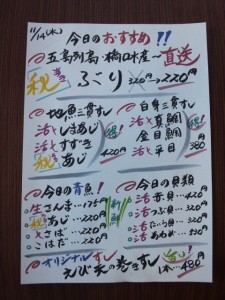 11/14(水)
今日のおすすめ!!
五島列島・橋口水産〜直送
秘 ぶり 320円→220円
地魚三貫すし
活〆しまあじ
活〆すずき
活〆あじ
得!
420円
白身三貫すし
活〆真鯛
金目鯛
活〆平目
得!
380円
今日の青魚!
生さんま…175円
あじ…220円
〆さば…220円
こはだ…220円
今日の貝類
活赤貝…420円
活つぶ貝…320円
活あわび…530円
オリジナルすし
えび天の巻きすし
1本…480円